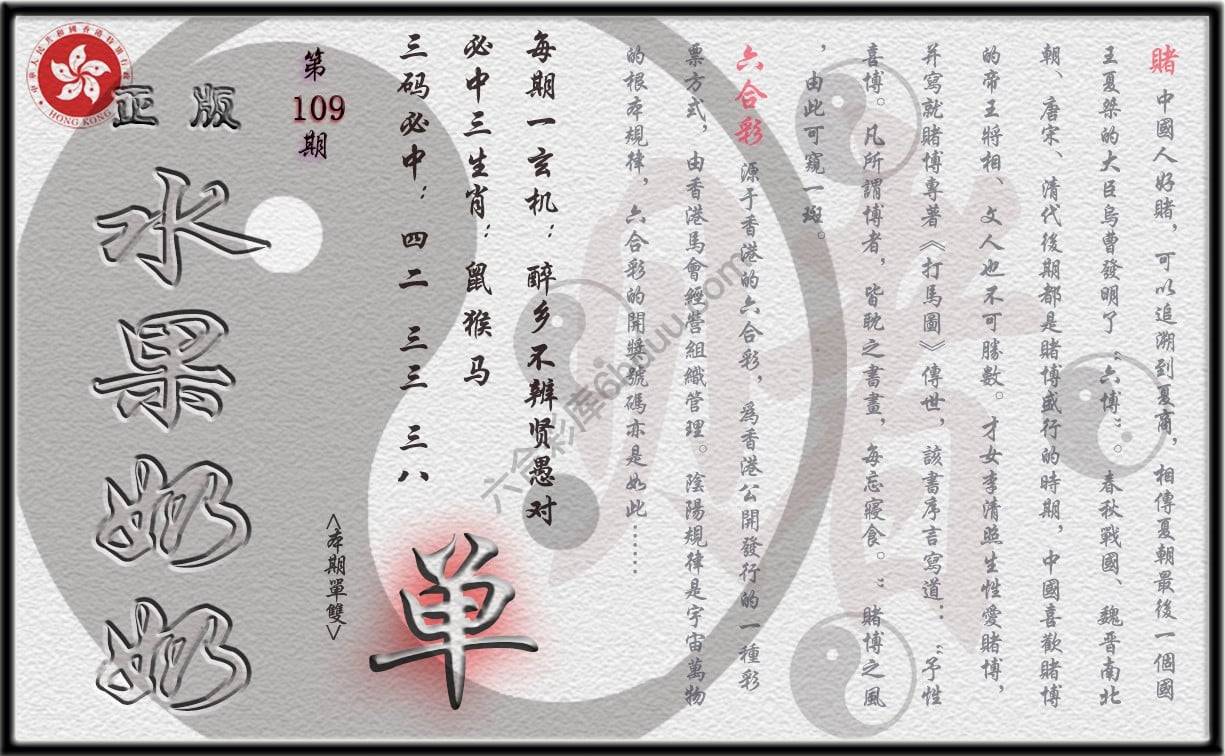 賭 中國人好賭，可以追溯到夏商，相傳夏朝最後一個國
王夏桀的大臣烏曹發明了“六博”。春秋戰國、魏晉南北
朝、唐宋、清代後期都是賭博盛行的時期，中國喜歡賭博
的帝王將相、文人也不可勝數。才女李清照生性愛賭博，
并寫就賭博專著《打馬圖》傳世，該書序言寫道：“予性
喜博。凡所謂博者，皆耽之書畫，每忘寢食。”賭博之風
，由此可窺一斑。
六合彩 源于香港的六合彩，爲香港公開發行的一種彩
票方式，由香港馬會經營組織管理。陰陽規律是宇宙萬物
的根本規律，六合彩的開獎號碼亦是如此……
每期一玄机：醉乡不辨贤愚对
必中三生肖：鼠猴马
三码必中：四二 三三 三八
单
<本期單雙>
第
109
期
正版
水果奶奶
中華人民共和國香港特別行政區
HONG KONG
六合彩库6hduu.com